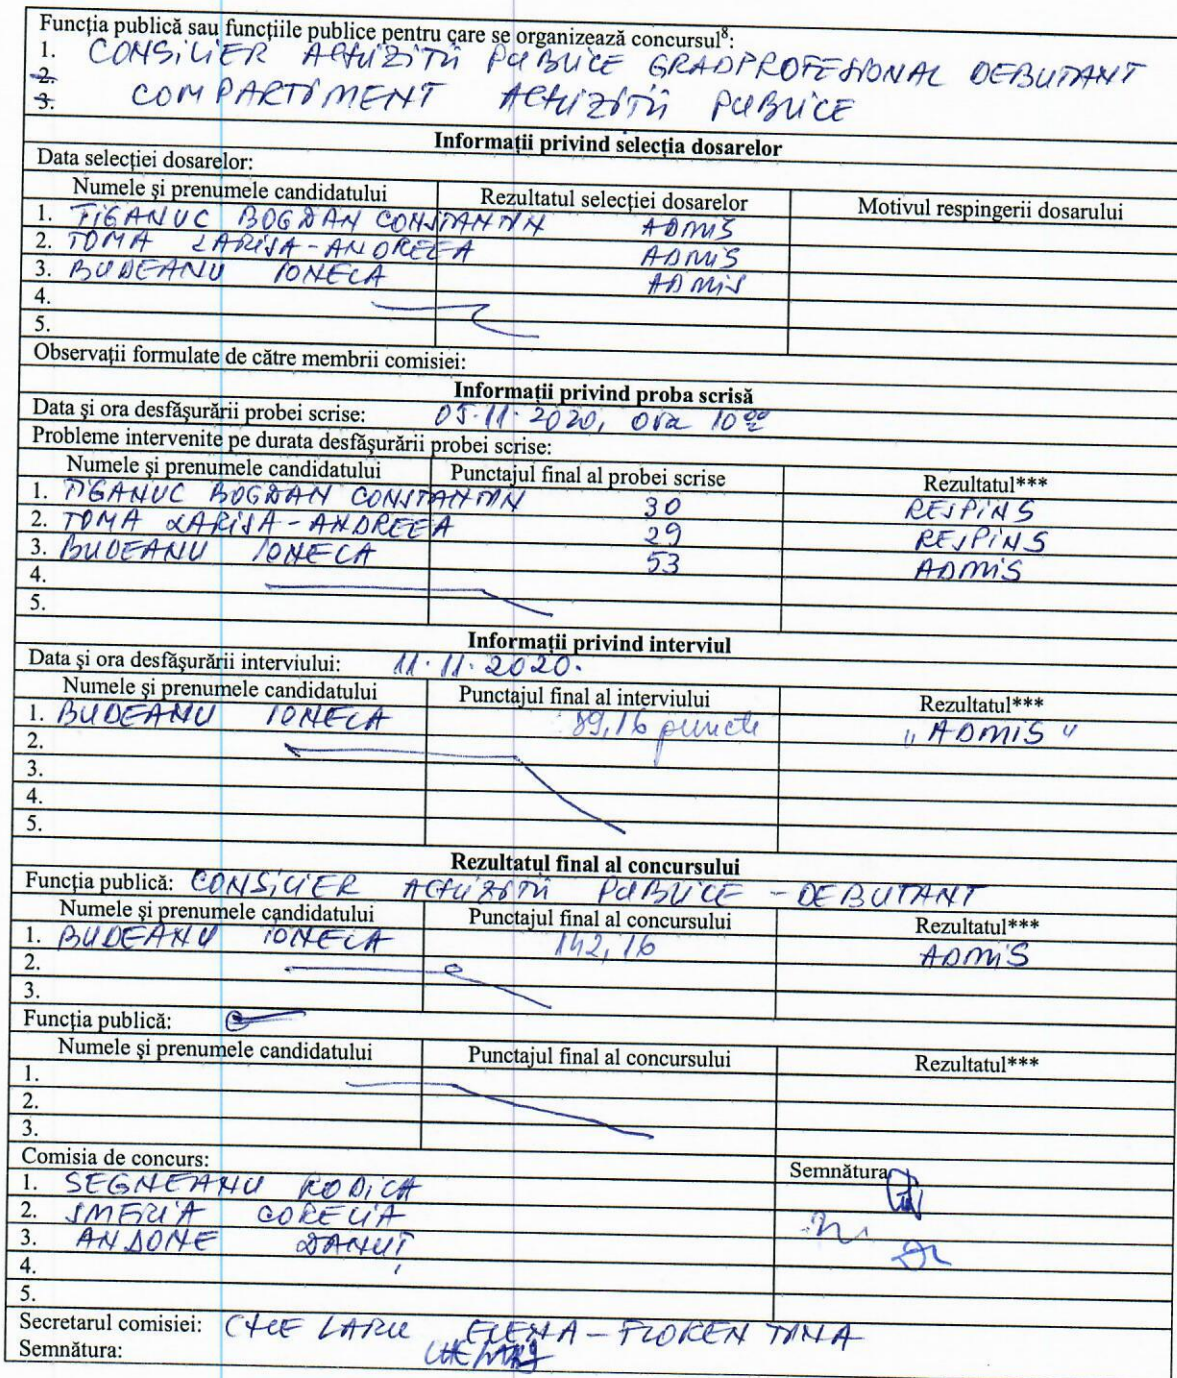 Funcția publică sau funcțiile publice pentru care se organizează concursul⁸:
1. CONSILIER ACHIZITII PUBLICE GRADPROFESIONAL DEBUTANT
2.
3. COMPARTIMENT ACHIZITII PUBLICE
Informații privind selecția dosarelor
Data selecției dosarelor:
Numele și prenumele candidatului Rezultatul selecției dosarelor Motivul respingerii dosarului
1. TIGANUC BOGDAN CONSTANTIN ADMIS
2. TOMA LARISA-ANDREEA ADMIS
3. BUDEANU IONELA ADMIS
4.
5.
Observații formulate de către membrii comisiei:
Informații privind proba scrisă
Data și ora desfășurării probei scrise: 05.11.2020, ora 10⁰⁰
Probleme intervenite pe durata desfășurării probei scrise:
Numele și prenumele candidatului Punctajul final al probei scrise Rezultatul***
1. TIGANUC BOGDAN CONSTANTIN 30 RESPINS
2. TOMA LARISA-ANDREEA 29 RESPINS
3. BUDEANU IONELA 53 ADMIS
4.
5.
Informații privind interviul
Data și ora desfășurării interviului: 11.11.2020.
Numele și prenumele candidatului Punctajul final al interviului Rezultatul***
1. BUDEANU IONELA 89,16 puncte „ADMIS"
2.
3.
4.
5.
Rezultatul final al concursului
Funcția publică: CONSILIER ACHIZITII PUBLICE - DEBUTANT
Numele și prenumele candidatului Punctajul final al concursului Rezultatul***
1. BUDEANU IONELA 142,16 ADMIS
2.
3.
Funcția publică:
Numele și prenumele candidatului Punctajul final al concursului Rezultatul***
1.
2.
3.
Comisia de concurs: Semnătura
1. SEGNEANU RODICA
2. SMERIA CORELIA
3. ANDONE DANUȚ
4.
5.
Secretarul comisiei: CHELARU ELENA-FLORENTINA
Semnătura: CHELARU